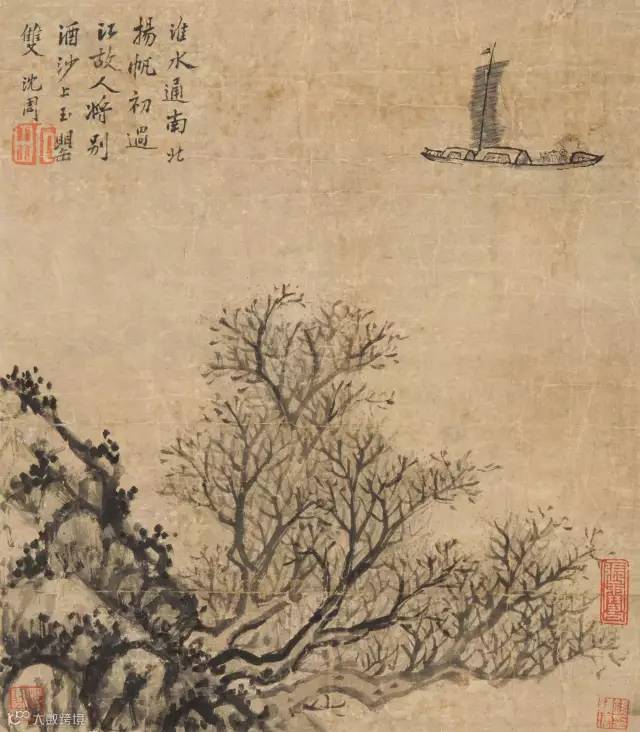 淮水通南北
揚帆初過
江故人將別
酒沙上玉甖
雙 沈周
大数跨境